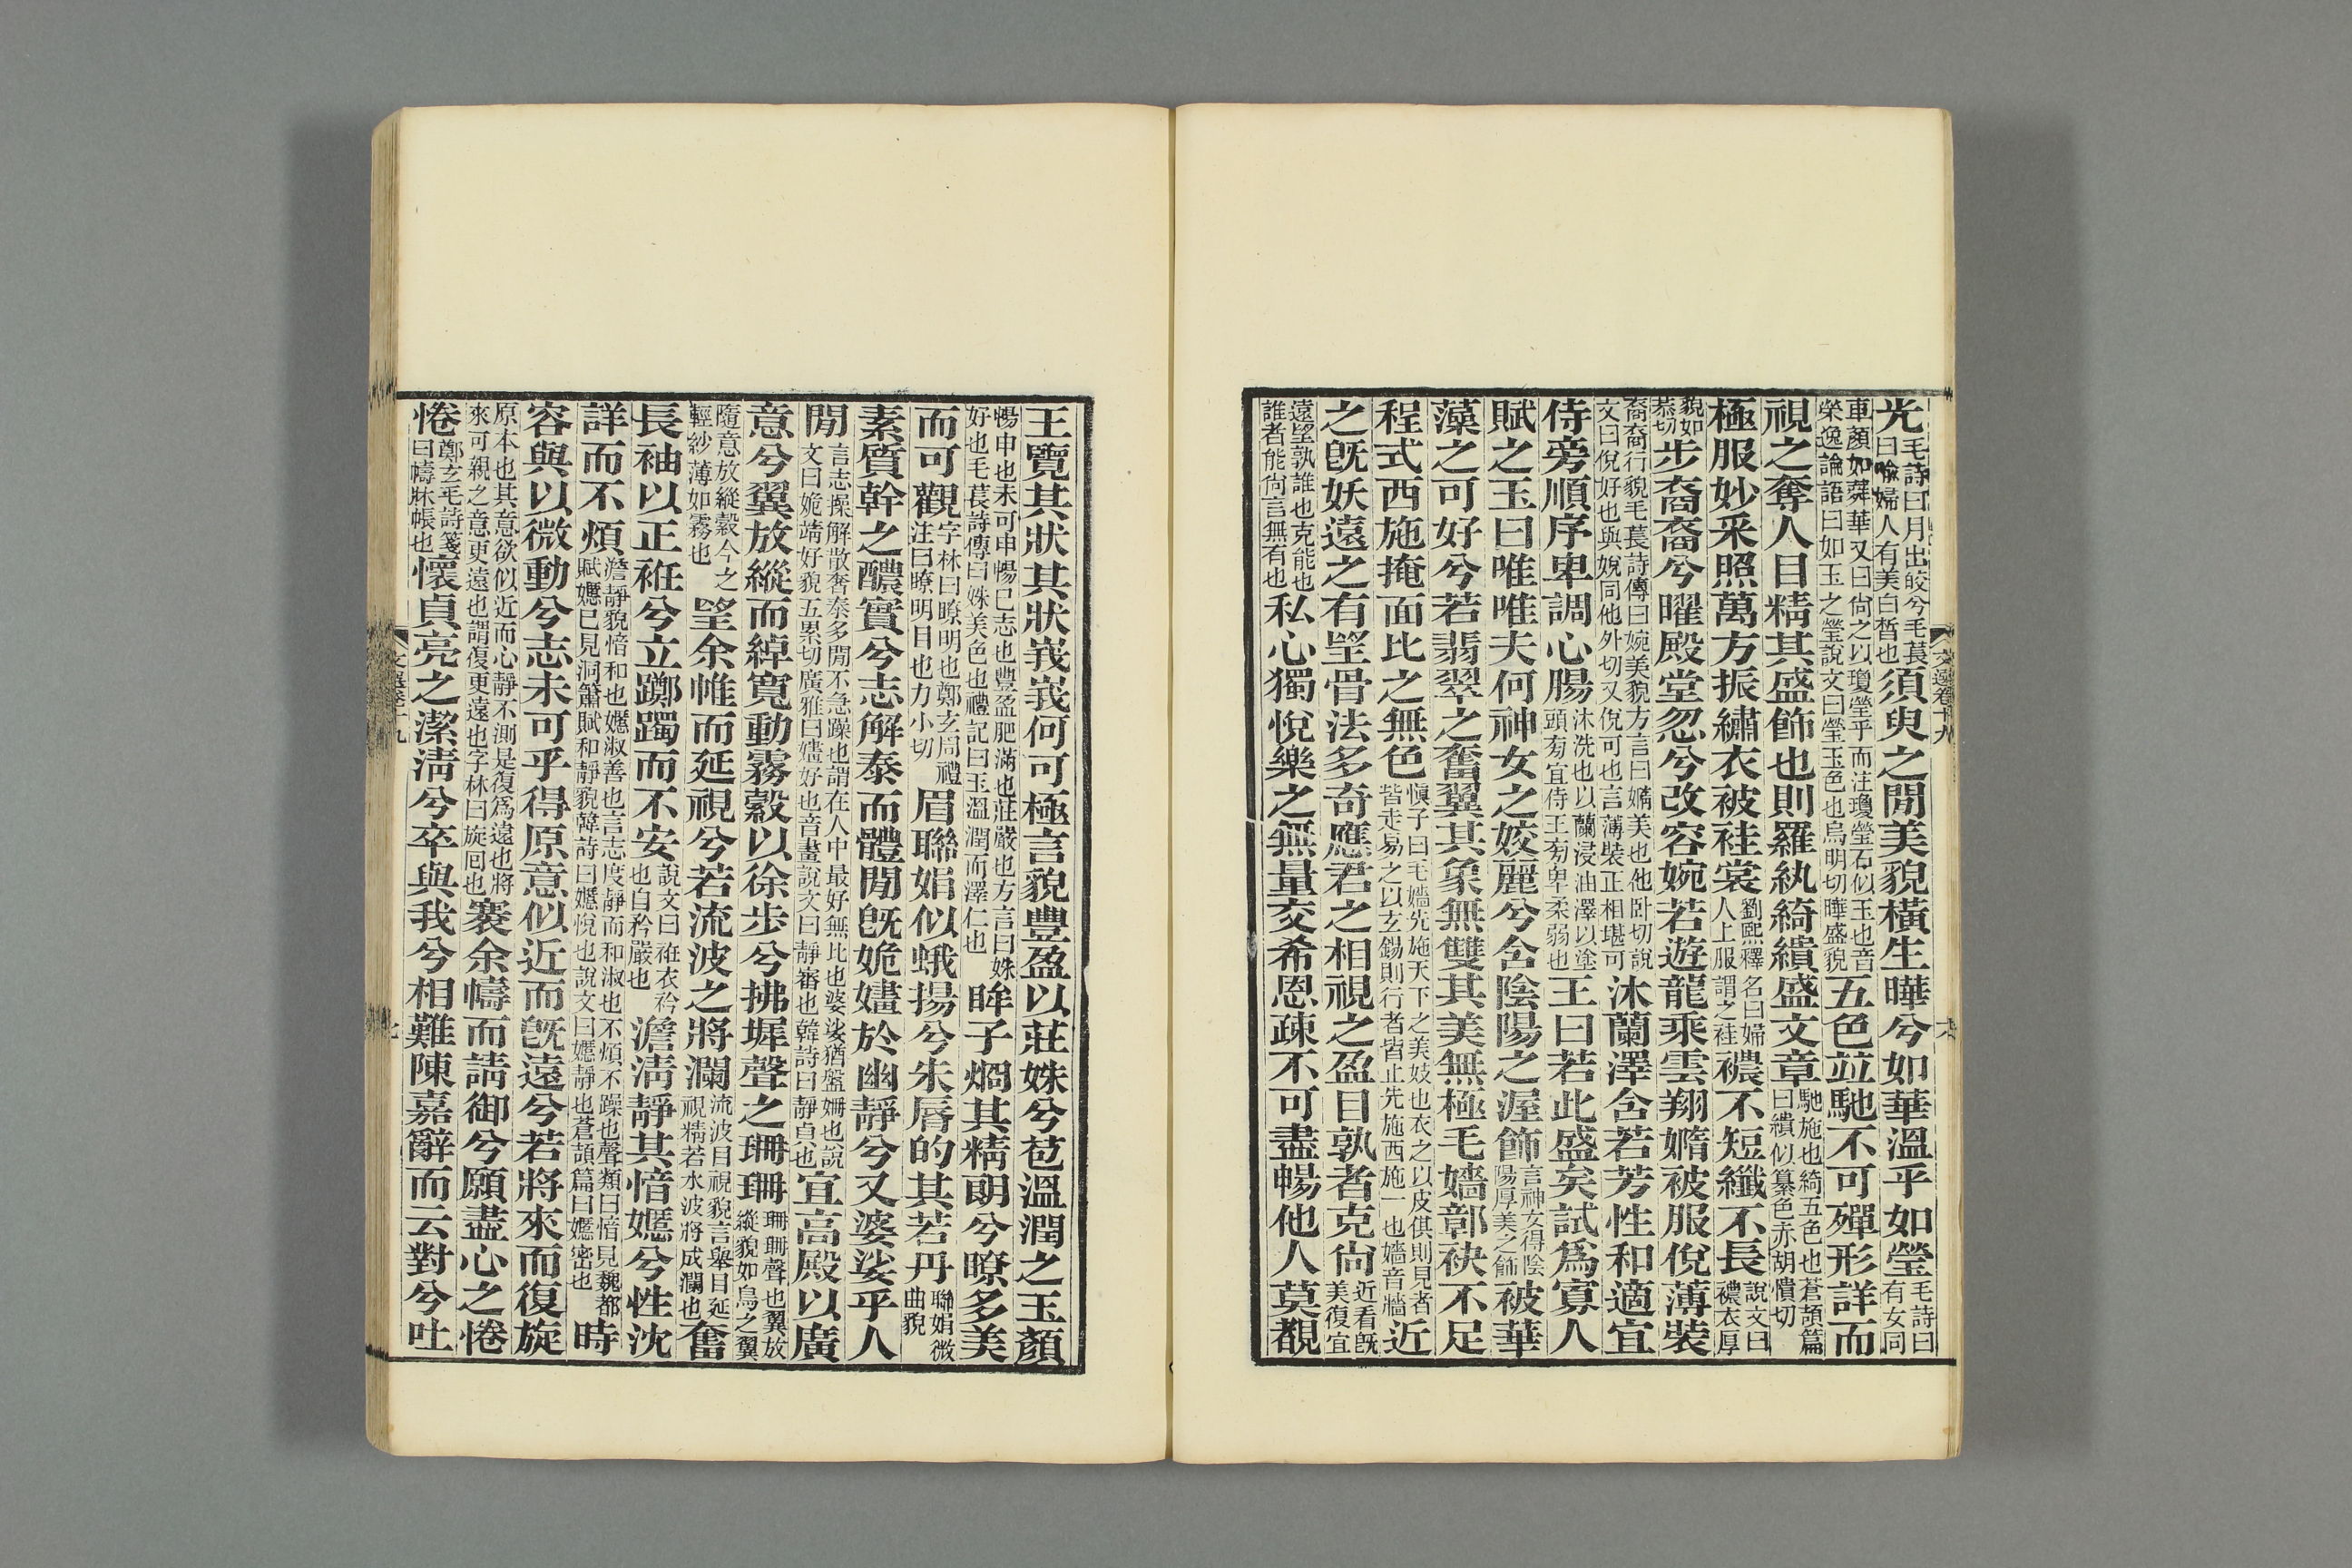 光毛詩曰月出皎兮毛萇曰喩婦人有美白皙也須臾之閒美貌橫生曄兮如華溫乎如瑩毛詩曰有女同
車顏如蕣華又曰尙之以瓊瑩乎而注瓊瑩石似玉也音榮逸論語曰如玉之瑩說文曰瑩玉色也烏明切曄盛貌五色竝馳不可殫形詳而
視之奪人目精其盛飾也則羅紈綺繢盛文章馳施也綺五色也蒼頡篇曰繢似纂色赤胡憒切
極服妙采照萬方振繡衣被袿裳劉熙釋名曰婦人上服謂之袿襛不短纖不長說文曰襛衣厚
貌如恭切步裔裔兮曜殿堂忽兮改容婉若遊龍乘雲翔嫷被服侻薄裝
裔裔行貌毛萇詩傳曰婉美貌方言曰嫷美也他卧切說文曰侻好也與娧同他外切又侻可也言薄裝正相堪可沐蘭澤含若芳性和適宜
侍旁順序卑調心腸沐洗也以蘭浸油澤以塗頭旁宜侍王旁卑柔弱也王曰若此盛矣試爲寡人
賦之玉曰唯唯夫何神女之姣麗兮含陰陽之渥飾言神女得陰陽厚美之飾被華
藻之可好兮若翡翠之奮翼其象無雙其美無極毛嬙鄣袂不足
程式西施掩面比之無色愼子曰毛嬙先施天下之美妓也衣之以皮倛則見者皆走易之以玄錫則行者皆止先施西施一也嬙音牆近
之旣妖遠之有望骨法多奇應君之相視之盈目孰者克尙近看旣美復宜
遠望孰誰也克能也誰者能尙言無有也私心獨悅樂之無量交希恩疎不可盡暢他人莫覩
文選卷十九
六
王覽其狀其狀峩峩何可極言貌豐盈以莊姝兮苞溫潤之玉顏
暢申也未可申暢巳志也豐盈肥滿也莊嚴也方言曰姝好也毛萇詩傳曰姝美色也禮記曰玉溫潤而澤仁也眸子烱其精朗兮暸多美
而可觀字林曰瞭明也鄭玄周禮注曰瞭明目也力小切眉聯娟似蛾揚兮朱脣的其若丹聯娟微曲貌
素質幹之醲實兮志解泰而體閒旣姽嫿於幽靜兮又婆娑乎人
閒言志操解散奢泰多閒不急躁也謂在人中最好無比也婆娑猶盤姍也說文曰姽靖好貌五累切廣雅曰嫿好也音畫說文曰靜審也韓詩曰靜貞也宜高殿以廣
意兮翼放縱而綽寬動霧縠以徐步兮拂墀聲之珊珊珊珊聲也翼放縱貌如鳥之翼
隨意放縱縠今之輕紗薄如霧也望余帷而延視兮若流波之將瀾流波目視貌言舉目延視精若水波將成瀾也奮
長袖以正衽兮立躑躅而不安說文曰衽衣衿也自矜嚴也澹清靜其愔嫕兮性沈
詳而不煩澹靜貌愔和也嫕淑善也言志度靜而和淑也不煩不躁也聲類曰愔見魏都賦嫕巳見洞簫賦和靜貌韓詩曰嫕悅也說文曰嫕靜也蒼頡篇曰嫕密也時
容與以微動兮志未可乎得原意似近而旣遠兮若將來而復旋
原本也其意欲似近而心靜不測是復爲遠也將來可親之意更遠也謂復更遠也字林曰旋回也褰余幬而請御兮願盡心之惓
惓鄭玄毛詩箋曰幬牀帳也懷貞亮之潔淸兮卒與我兮相難陳嘉辭而云對兮吐
文選卷十九
七